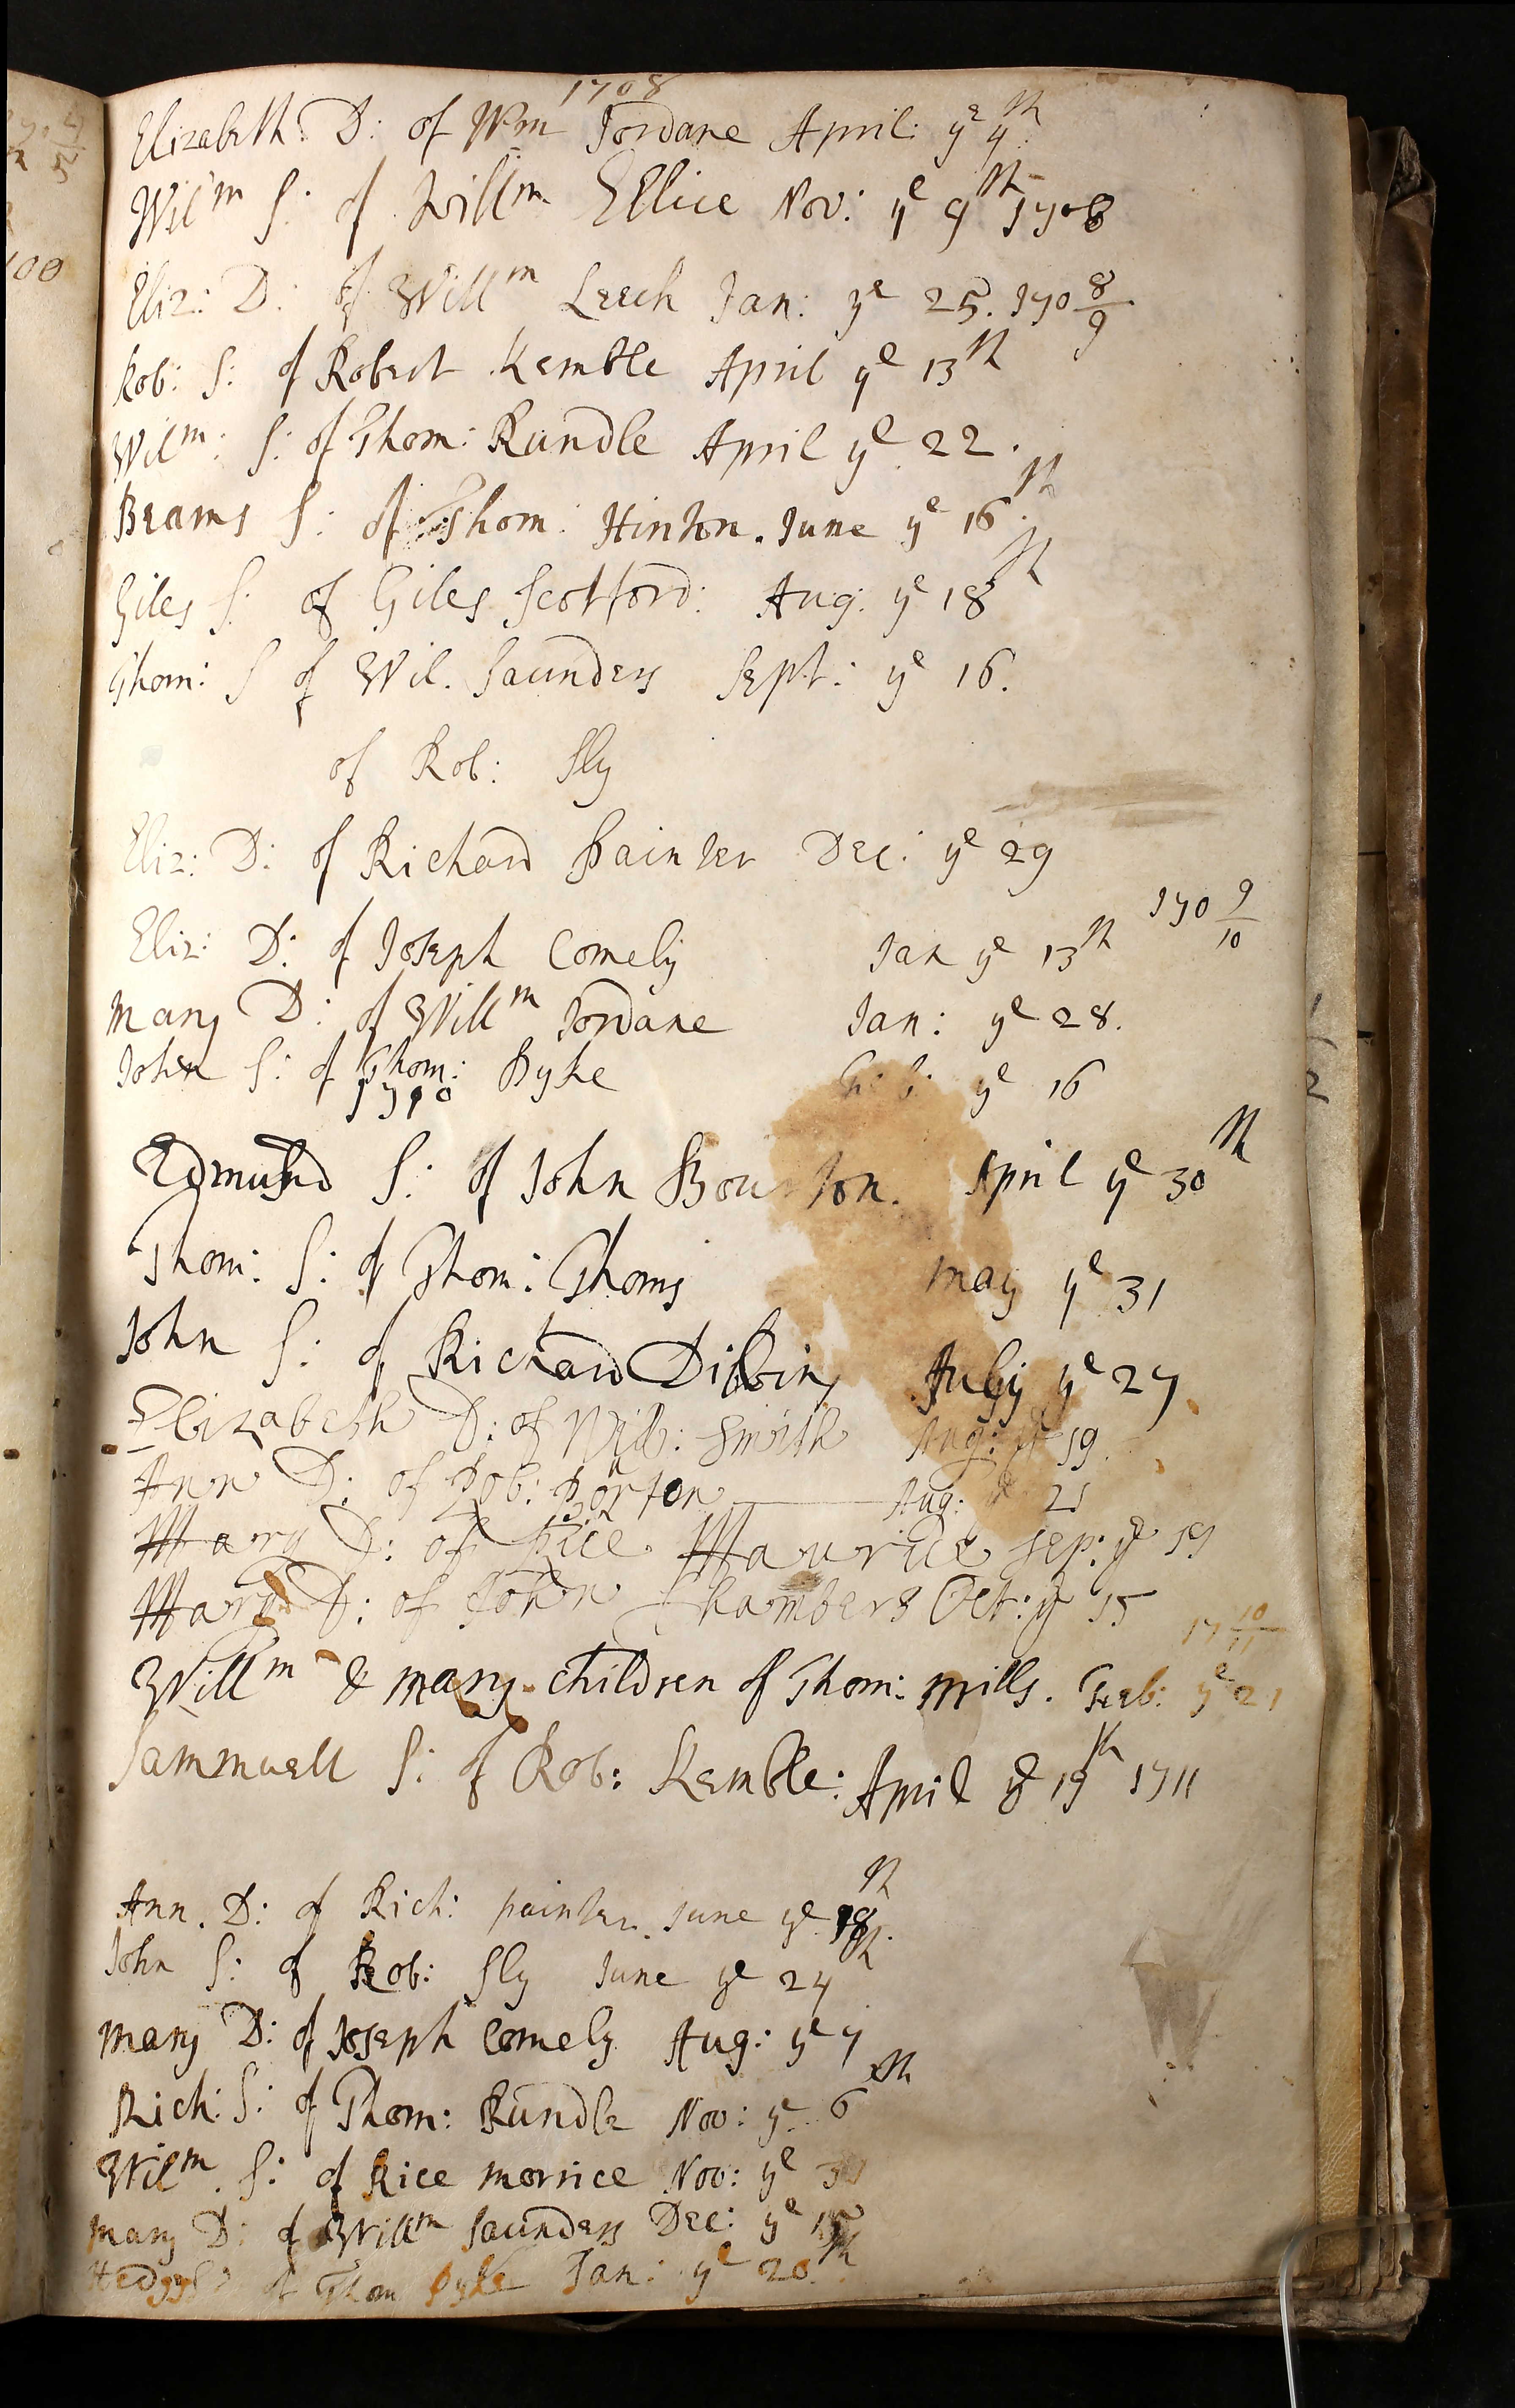 1708
Elizabeth D: of Wm Jordane April: ye 7th
Wilm S: of Willm Ellice Nov: ye 9th 1708
Eliz: D: of Willm Leech Jan: ye 25. 170 8/9
Rob: S: of Robert Kemble April ye 13th
Wilm: S: of Thom: Rundle April ye 22.
Beams S: of Thom: Hinton. June ye 16th
Giles S: of Giles Scotford: Aug: ye 18th
Thom: S of Wil. Saunders Sept: ye 16.
of Rob: Sly
Eliz: D: of Richard Painter Dec: ye 29
Eliz: D: of Joseph Comely Jan ye 13th 170 9/10
Mary D: of Willm Jordane Jan: ye 28.
John S: of Thom: Pyke Feb: ye 16
1710
Edmund S: of John Bourton. April ye 30th
Thom: S: of Thom: Thoms May ye 31
John S: of Richard Dibbins July ye 27
Elizabeth D: of Will: Smith Aug: ye 19.
Ann D: of Rob: Porton Aug: 21
Mary D: of Rice Maurice Sep: ye
Mary D: of John Chambers Oct: ye 15
17 10/11
Willm & Mary children of Thom: Mills. Feb: ye 21
Sammuell S: of Rob: Kemble: April ye 19th 1711
Ann. D: of Rich: painter June ye 18th
John S: of Rob: Sly June ye 24th
Mary D: of Joseph Comely Aug: ye 7
Rich: S: of Thom: Rundle Nov: ye 6th
Wilm. S: of Rice Morrice Nov: ye
Mary D: of Willm Saunders Dec: ye
of Thom Pyke Jan: ye 20th